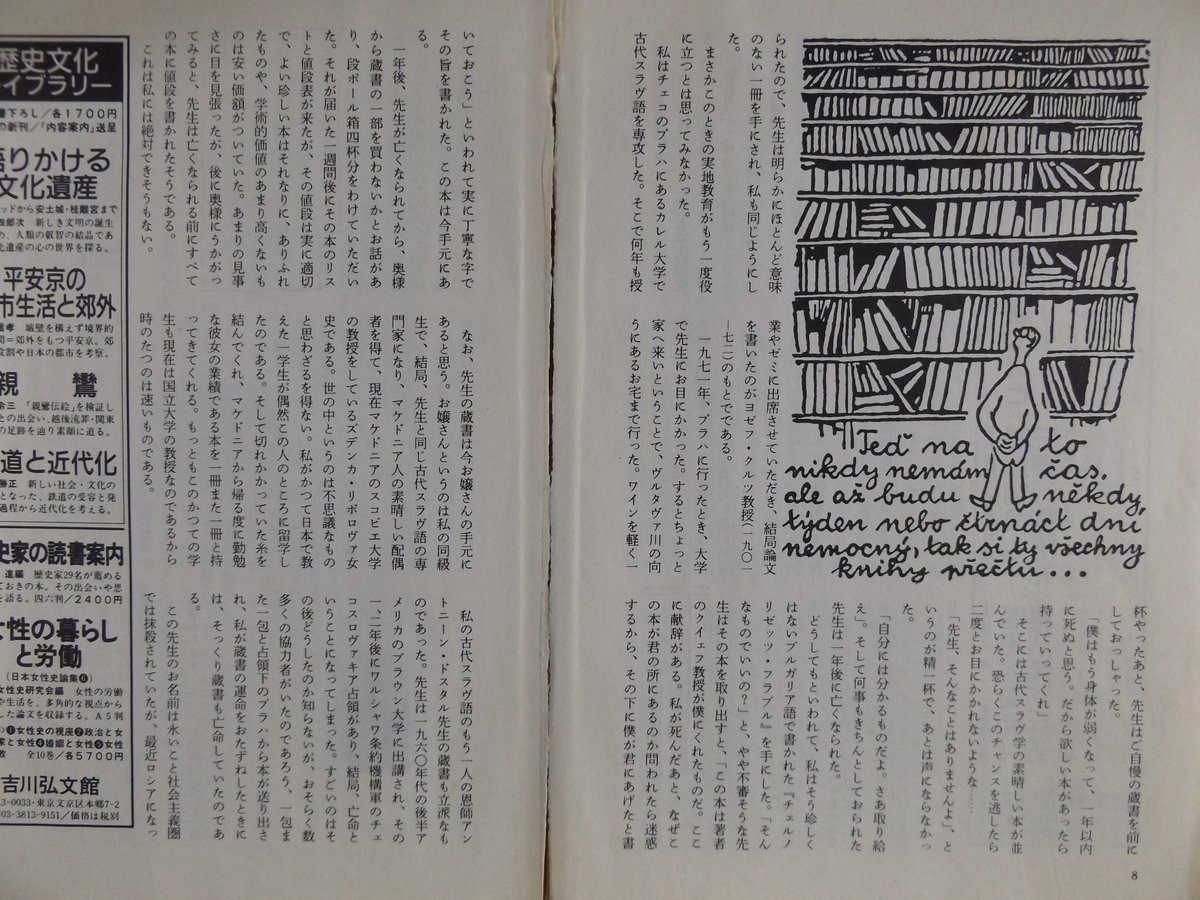 Teď na to
nikdy nemám čas,
ale až budu někdy
týden nebo čtrnáct dní
nemocný, tak si ty všechny
knihy přečtu...
られたので、先生は明らかにほとんど意味
のない一冊を手にされ、私も同じようにし
た。
まさかこのときの実地教育がもう一度役
に立つとは思ってみなかった。
私はチェコのプラハにあるカレル大学で
古代スラヴ語を専攻した。そこで何年も授
業やゼミに出席させていただき、結局論文
を書いたのがヨゼフ・クルツ教授(一九〇一
―七二)のもとでである。
一九七一年、プラハに行ったとき、大学
で先生にお目にかかった。するとちょっと
家へ来いということで、ヴルタヴァ川の向
うにあるお宅まで行った。ワインを軽く一
杯やったあと、先生はご自慢の蔵書を前に
しておっしゃった。
「僕はもう身体が弱くなって、一年以内
に死ぬと思う。だから欲しい本があったら
持っていってくれ」
そこには古代スラヴ学の素晴しい本が並
んでいた。恐らくこのチャンスを逃したら
二度とお目にかかれないような……
「先生、そんなことはありませんよ」、と
いうのが精一杯で、あとは声にならなかっ
た。
「自分には分かるものだよ。さあ取り給
え」。そして何事もきちんとしておられた
先生は一年後に亡くなられた。
どうしてもといわれて、私はそう珍しく
はないブルガリア語で書かれた『チェルノ
リゼッツ・フラブル』を手にした。「そん
なものでいいの?」と、やや不審そうな先
生はその本を取り出すと、「この本は著者
のクイェフ教授が僕にくれたものだ。ここ
に献辞がある。私が死んだあと、なぜこ
の本が君の所にあるのか問われたら迷惑
するから、その下に僕が君にあげたと書
8
いておこう」といわれて実に丁寧な字で
その旨を書かれた。この本は今手元にあ
る。
一年後、先生が亡くなられてから、奥様
から蔵書の一部を買わないかとお話があ
り、段ボール箱四杯分をわけていただい
た。それが届いた一週間後にその本のリス
トと値段表が来たが、その値段は実に適切
で、よい珍しい本はそれなりに、ありふれ
たものや、学術的価値のあまり高くないも
のは安い価額がついていた。あまりの見事
さに目を見張ったが、後に奥様にうかがっ
てみると、先生は亡くなられる前にすべて
の本に値段を書かれたそうである。
これは私には絶対できそうもない。
なお、先生の蔵書は今お嬢さんの手元に
あると思う。お嬢さんというのは私の同級
生で、結局、先生と同じ古代スラヴ語の専
門家になり、マケドニア人の素晴しい配偶
者を得て、現在マケドニアのスコピエ大学
の教授をしているズデンカ・リボロヴァ女
史である。世の中というのは不思議なもの
と思わざるを得ない。私がかつて日本で教
えた一学生が偶然この人のところに留学し
たのである。そして切れかかっていた糸を
結んでくれ、マケドニアから帰る度に勤勉
な彼女の業績である本を一冊また一冊と持
ってきてくれる。もっともこのかつての学
生も現在は国立大学の教授なのであるから
時のたつのは速いものである。
私の古代スラヴ語のもう一人の恩師アン
トニーン・ドスタル先生の蔵書も立派なも
のであった。先生は一九六〇年代の後半ア
メリカのブラウン大学に出講され、その
一、二年後にワルシャワ条約機構軍のチェ
コスロヴァキア占領があり、結局、亡命と
いうことになってしまった。すごいのはそ
の後どうしたのか知らないが、おそらく数
多くの協力者がいたのであろう、一包ま
た一包と占領下のプラハから本が送り出さ
れ、私が蔵書の運命をおたずねしたときに
は、そっくり蔵書も亡命していたのであ
る。
この先生のお名前は永いこと社会主義圏
では抹殺されていたが、最近ロシアになっ
歴史文化
イブラリー
下ろし/各1700円
の新刊/「内容案内」送呈
語りかける
文化遺産
ッドから安土城・桂離宮まで
郎次 新しき文明の誕生
人類の叡智の結晶であ
遺産の心の世界を探る。
平安京の
市生活と郊外
孝 城壁を構えず境界的
=郊外をもつ平安京。郊
役割や日本の都市を考察。
親鸞
三 「親鸞伝絵」を検証し
との出会い、越後流罪・関東
の足跡を辿り素顔に迫る。
道と近代化
勝正 新しい社会・文化の
となった、鉄道の受容と発
過程から近代化を考える。
史家の読書案内
進編 歴史家29名が薦める
ておきの本。その出会いや思
を語る。四六判/2400円
女性の暮らし
と労働
(日本女性史論集❻)
女性史研究会編 女性の労働
や生活を、多角的な視点から
した論文を収録する。A5判
❶女性史の視座❷政治と女
家と女性❹婚姻と女性❺女性
全10巻/各5700円
吉川弘文館
3-0033・東京文京区本郷7-2
03-3813-9151/価格は税別